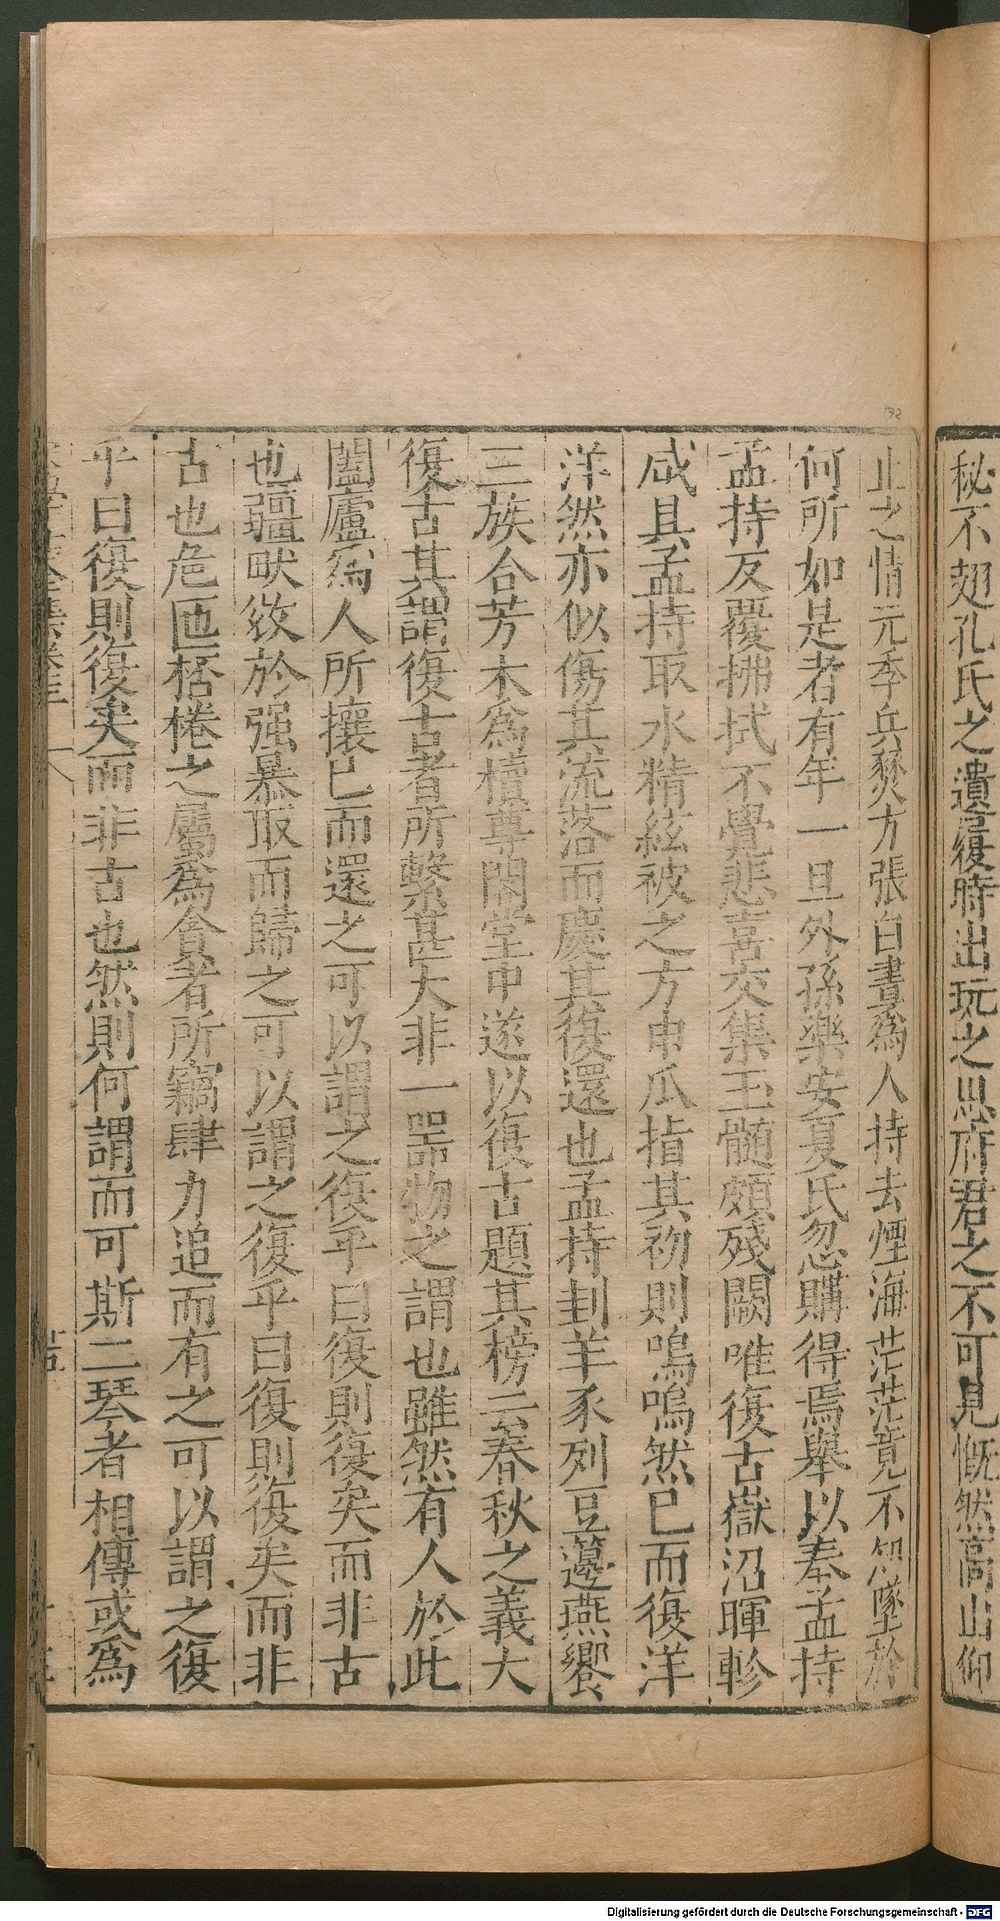 秘不翅孔氏之遺履時出玩之思府君之不可見慨然高山仰
止之情元季兵燹方張白晝為人持去煙海茫茫竟不知墜於
何所如是者有年一旦外孫樂安夏氏忽購得焉舉以奉孟持
孟持反覆拂拭不覺悲喜交集玉髓頗殘闕唯復古嶽沼暉軫
咸具孟持取水精絃被之方申爪指其初則嗚嗚然已而復洋
洋然亦似傷其流落而慶其復還也孟持刲羊豕列豆籩燕饗
三族合芳木為櫝尊閣堂中遂以復古題其榜云春秋之義大
復古其謂復古者所繫甚大非一噐物之謂也雖然有人於此
闔廬為人所攘已而還之可以謂之復乎曰復則復矣而非古
也疆畎斂於强暴取而歸之可以謂之復乎曰復則復矣而非
古也巵匜桮棬之屬為貪者所竊肆力追而有之可以謂之復
乎曰復則復矣而非古也然則何謂而可斯二琴者相傳或為
Digitalisierung gefördert durch die Deutsche Forschungsgemeinschaft - DFG